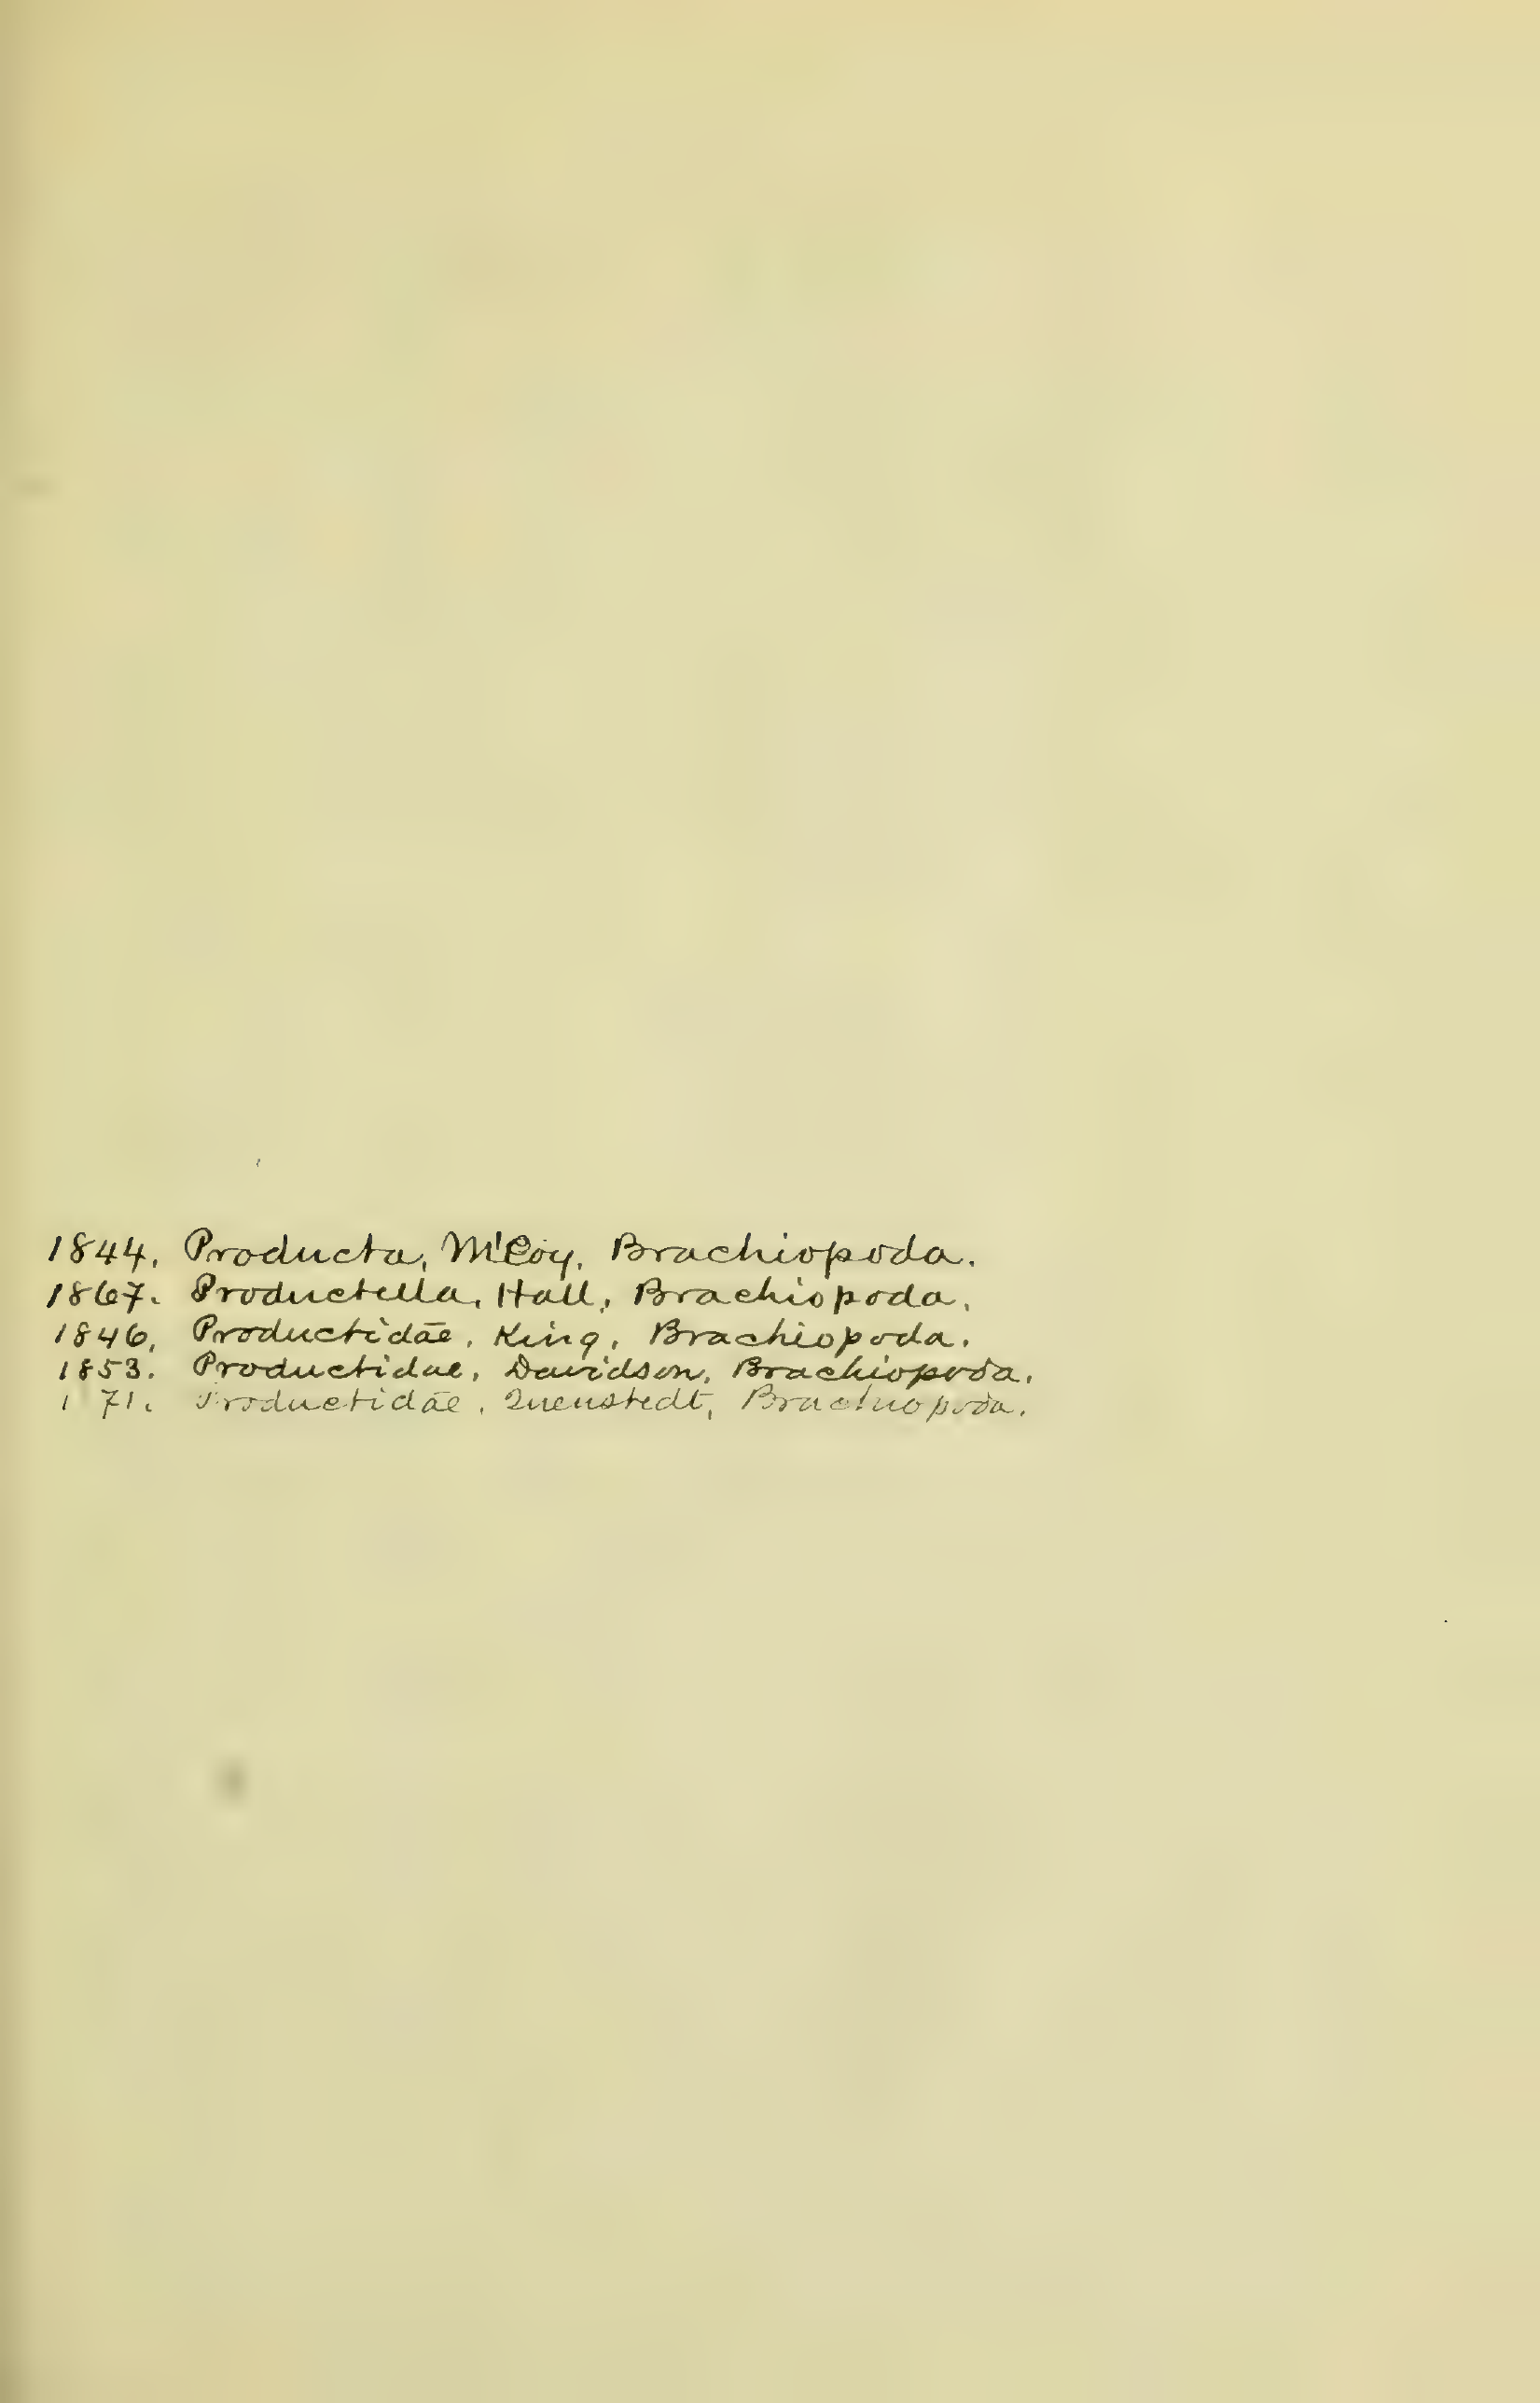 1844. Producta, M'Coy, Brachiopoda.
1867. Productella, Hall, Brachiopoda.
1846. Productidae, King, Brachiopoda.
1853. Productidae, Davidson, Brachiopoda.
1 71. Productidae, Quenstedt, Brachiopoda.